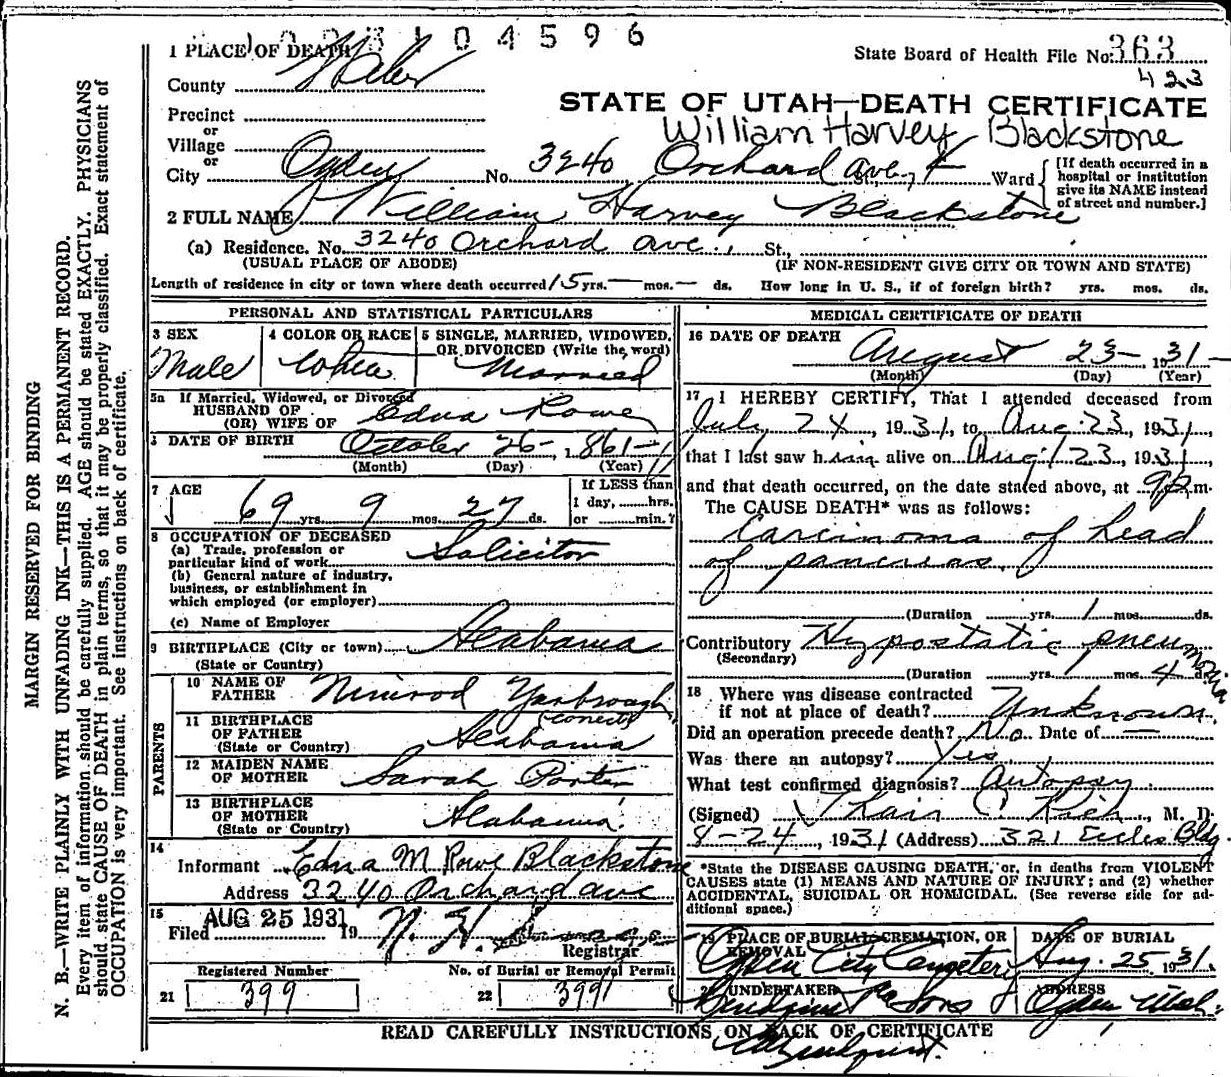 1 PLACE OF DEATH 104596
State Board of Health File No. 363
423
County Weber
STATE OF UTAH—DEATH CERTIFICATE
Precinct
William Harvey Blackstone
or
Village
or
City Ogden No. 3240 Orchard ave, St. Ward
[If death occurred in a hospital or institution give its NAME instead of street and number.]
2 FULL NAME William Harvey Blackstone
(a) Residence. No. 3240 Orchard ave., St.,
(USUAL PLACE OF ABODE) (IF NON-RESIDENT GIVE CITY OR TOWN AND STATE)
Length of residence in city or town where death occurred 15 yrs. — mos. — ds. How long in U. S., if of foreign birth? yrs. mos. ds.
PERSONAL AND STATISTICAL PARTICULARS
3 SEX Male
4 COLOR OR RACE White
5 SINGLE, MARRIED, WIDOWED, OR DIVORCED (Write the word) Married
5a If Married, Widowed, or Divorced
HUSBAND OF
(OR) WIFE OF Edna Rowe
6 DATE OF BIRTH October 26—, 1861—
(Month) (Day) (Year)
7 AGE 69 yrs. 9 mos. 27 ds.
If LESS than 1 day, hrs. or min.?
8 OCCUPATION OF DECEASED
(a) Trade, profession or particular kind of work Solicitor
(b) General nature of industry, business, or establishment in which employed (or employer)
(c) Name of Employer
9 BIRTHPLACE (City or town) Alabama
(State or Country)
PARENTS
10 NAME OF FATHER Nimrod Yarbrough
11 BIRTHPLACE OF FATHER Alabama
(State or Country)
12 MAIDEN NAME OF MOTHER Sarah Porter
13 BIRTHPLACE OF MOTHER Alabama
(State or Country)
14
Informant Edna M Rowe Blackstone
Address 3240 Orchard ave
15
Filed AUG 25 1931 19 N. H.
Registrar
Registered Number No. of Burial or Removal Permit
21 399 22 399
MEDICAL CERTIFICATE OF DEATH
16 DATE OF DEATH August 23— 1931—
(Month) (Day) (Year)
17 I HEREBY CERTIFY, That I attended deceased from
July 24, 1931, to Aug. 23, 1931,
that I last saw him alive on Aug 23, 1931,
and that death occurred, on the date stated above, at 9 p.m.
The CAUSE DEATH* was as follows:
Carcinoma of head
of pancreas.
(Duration yrs. 1 mos. ds.
Contributory Hypostatic pneumonia
(Secondary)
(Duration yrs. mos. 4 ds.
18 Where was disease contracted
if not at place of death? Unknown.
Did an operation precede death? No Date of —
Was there an autopsy? Yes
What test confirmed diagnosis? Autopsy
(Signed) Rich, M. D.
8-24, 1931 (Address) 321 Eccles Bldg
*State the DISEASE CAUSING DEATH, or, in deaths from VIOLENT
CAUSES state (1) MEANS AND NATURE OF INJURY; and (2) whether
ACCIDENTAL, SUICIDAL OR HOMICIDAL. (See reverse side for ad-
ditional space.)
19 PLACE OF BURIAL, CREMATION, OR REMOVAL Ogden City Cemetery
DATE OF BURIAL Aug. 25 1931.
20 UNDERTAKER & Sons
ADDRESS Ogden Utah.
READ CAREFULLY INSTRUCTIONS ON BACK OF CERTIFICATE
MARGIN RESERVED FOR BINDING
N. B.—WRITE PLAINLY WITH UNFADING INK—THIS IS A PERMANENT RECORD.
Every item of information should be carefully supplied. AGE should be stated EXACTLY. PHYSICIANS
should state CAUSE OF DEATH in plain terms, so that it may be properly classified. Exact statement of
OCCUPATION is very important. See instructions on back of certificate.